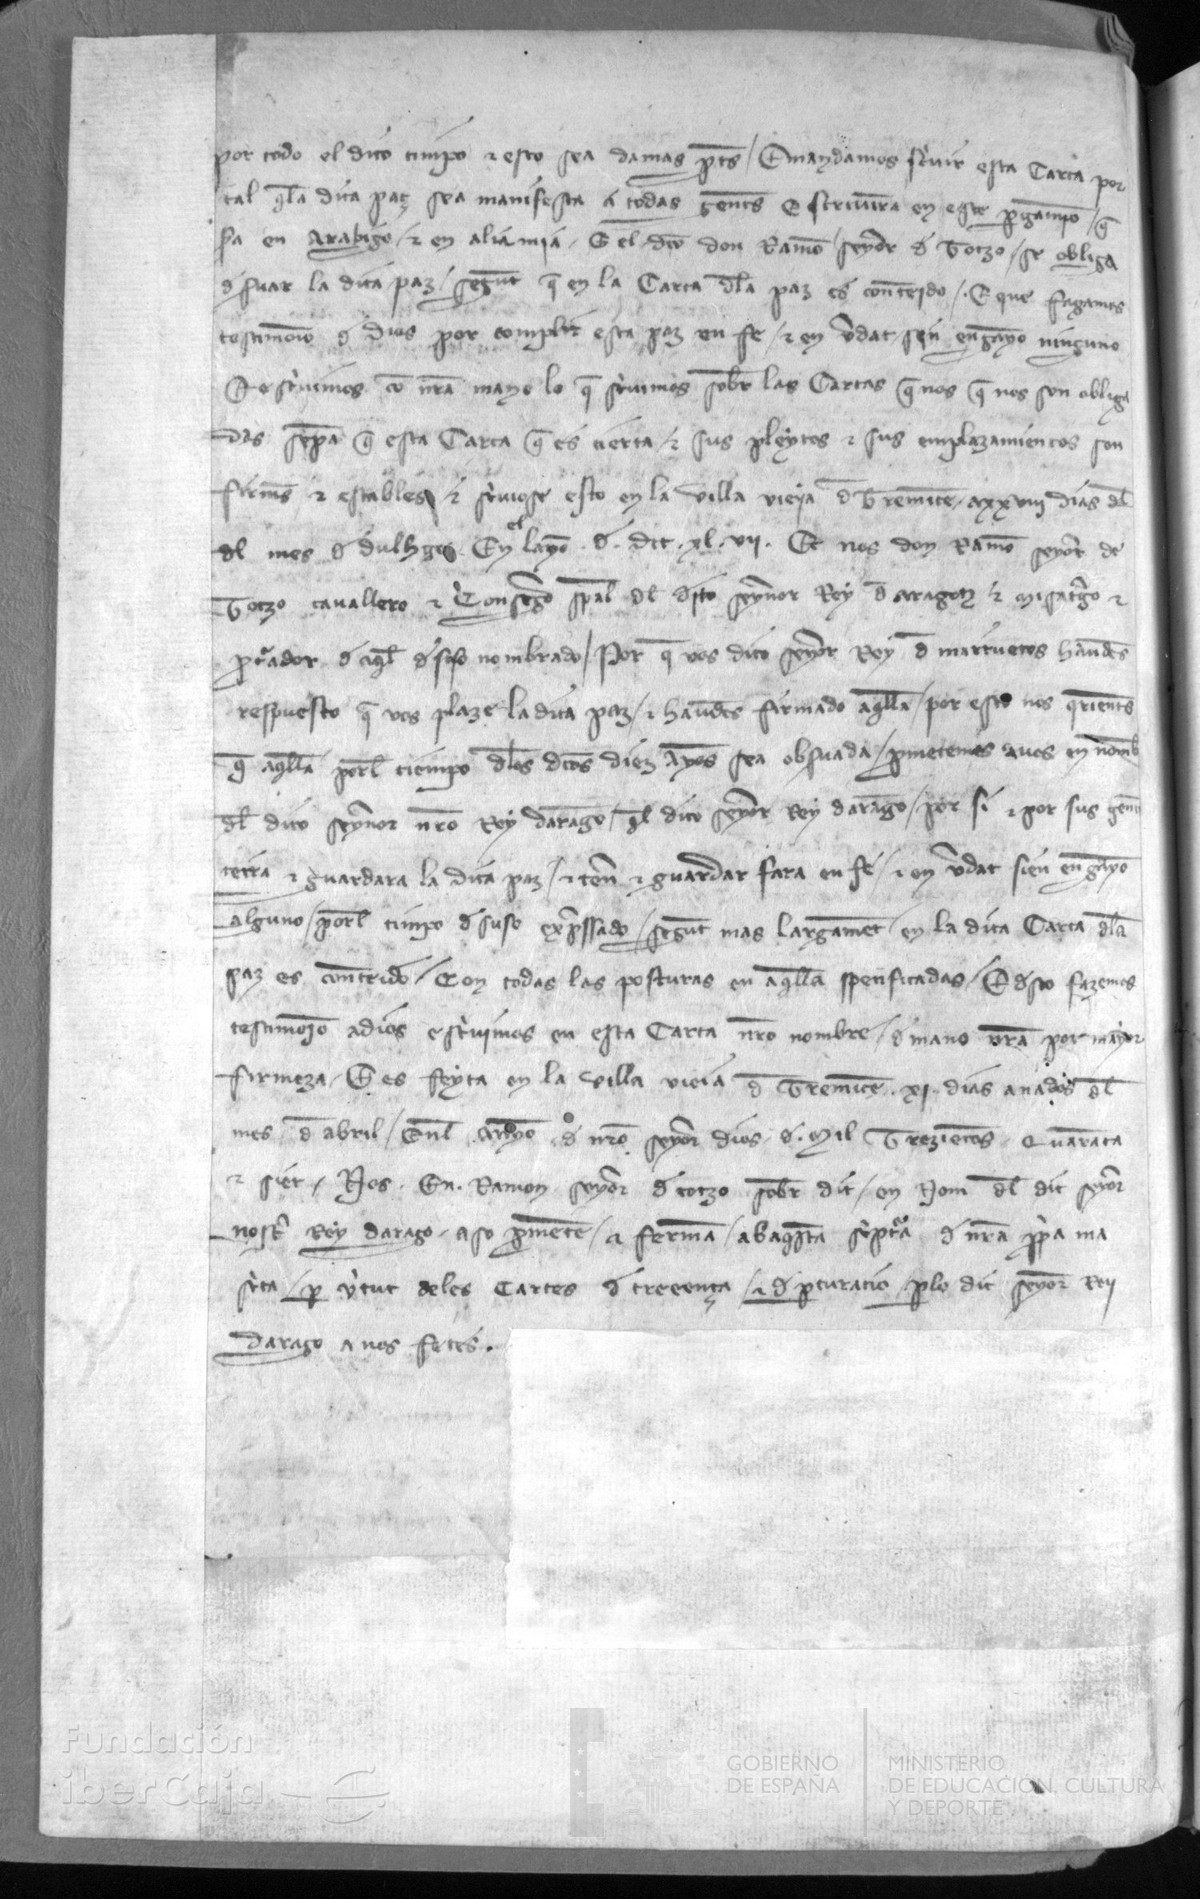 por todo el dito timpo & esto sea damas pts / E mandamos scriuir esta Carta por
tal qla dita paz sea manifesta a todas gents E scriuira en este pgamio / q
sia en Arabigo / & en aliamia. E el dco don Ramo seyor d Totzo / se obliga
d suar la dita paz / segunt q en la Carta dla paz es contenido /. E que fagamos
testimonio d dios por complir esta paz en fe / & en vdat sen engayo ninguno
E escriuimos co nra mano lo q scriuimos sobr las Cartas q nos q nos son obliga
das sepa q esta Carta q es cierta & sus pleytos & sus emplazamientos son
firms & estables & scriuiose esto en la villa vieia d Tremice. axxviii dias dl
dl mes d dulhge. En el layo. d. dcc. xl. vii. Et nos don Ramo seyor de
Totzo cauallero & Consero spal dl dito seynor Rey d Aragon & misatgo &
pcurador d aql d suso nombrado / Por q vos dito seyor Rey d marruecos hauedes
respuesto q vos plaze la dita paz / & hauedes firmado aqlla / por esto nos qrients
q aqlla porl tiempo dlos dcos diez Ayos sea obsuada / pmetemos auos en nomb
dl dito seynor nro Rey darago / ql dito seyor Rey darago / por si & por sus gents
terra & guardara la dita paz / & ten & guardar fara en fe / & en vdat sien engayo
alguno / porl timpo d suso expssado / segunt mas largament en la dita Carta dla
paz es contenido / Con todas las posturas en aqlla specificadas / E dsto fazemos
testimonio adios e scriuimos en esta Carta nro nombre / d mano nra por mayor
firmeza. E es feyta en la villa vieia d Tremice. xi. dias anados dl
mes d abril / Enl anyo d nro seyor dios d. Mil Trezientos Quarata
& siet. Nos. En. Ramon seyor d totzo sobr dit / en Nom dl dit seyor
nostr Rey darago. aso pmete / & ferma / abaqsta scriptra d nra ppia ma
scrita / p vtut deles Cartes d creença / & d pcuratio plo dit seyor Rey
darago a nos fetes.
Fundación
iberCaja
GOBIERNO
DE ESPAÑA
MINISTERIO
DE EDUCACIÓN, CULTURA
Y DEPORTE